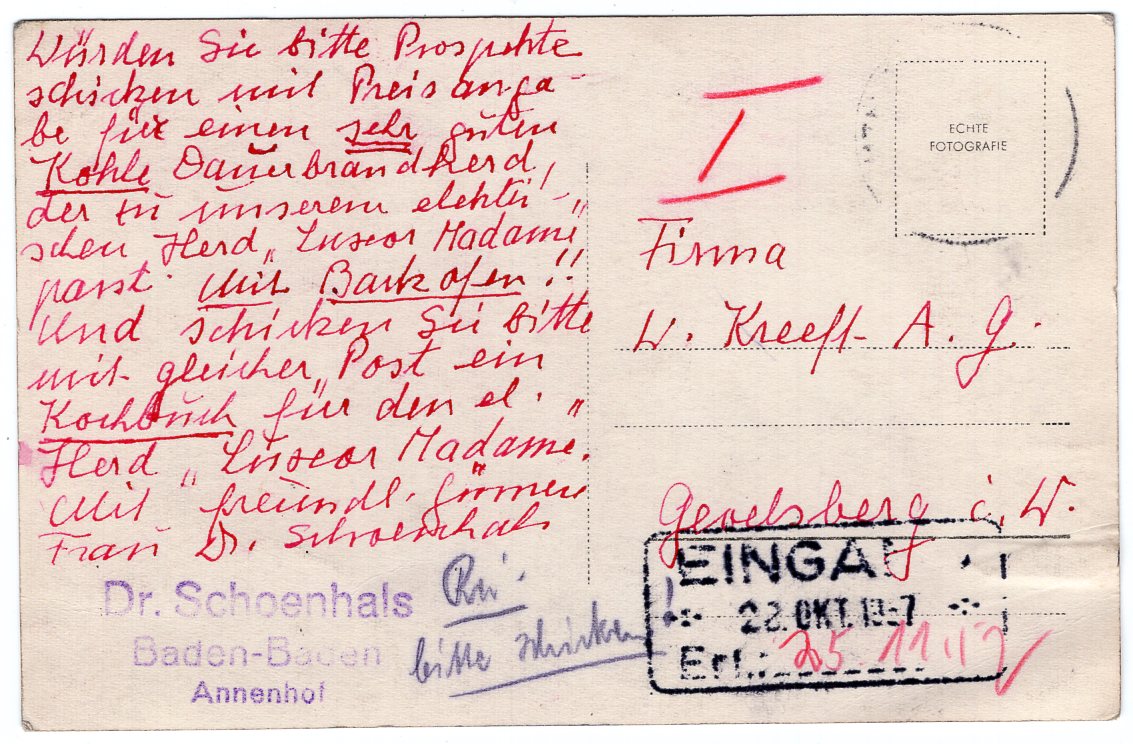 Würden Sie bitte Prospekte
schicken mit Preisanga-
be für einen sehr guten
Kohle Dauerbrandherd,
der zu unserem elektri-
schen Herd „Luxor Madame"
passt. Mit Backofen!!
Und schicken Sie bitte
mit gleicher Post ein
Kochbuch für den el.
Herd „Luxor Madame".
Mit freundl. Grüssen
Frau Dr. Schoenhals
Dr. Schoenhals
Baden-Baden
Annenhof
bitte schicken!
I
ECHTE
FOTOGRAFIE
Firma
W. Kreeft A.G.
Gevelsberg i. W.
EINGA
28. OKT. 19 7
Erl.: 25.11.